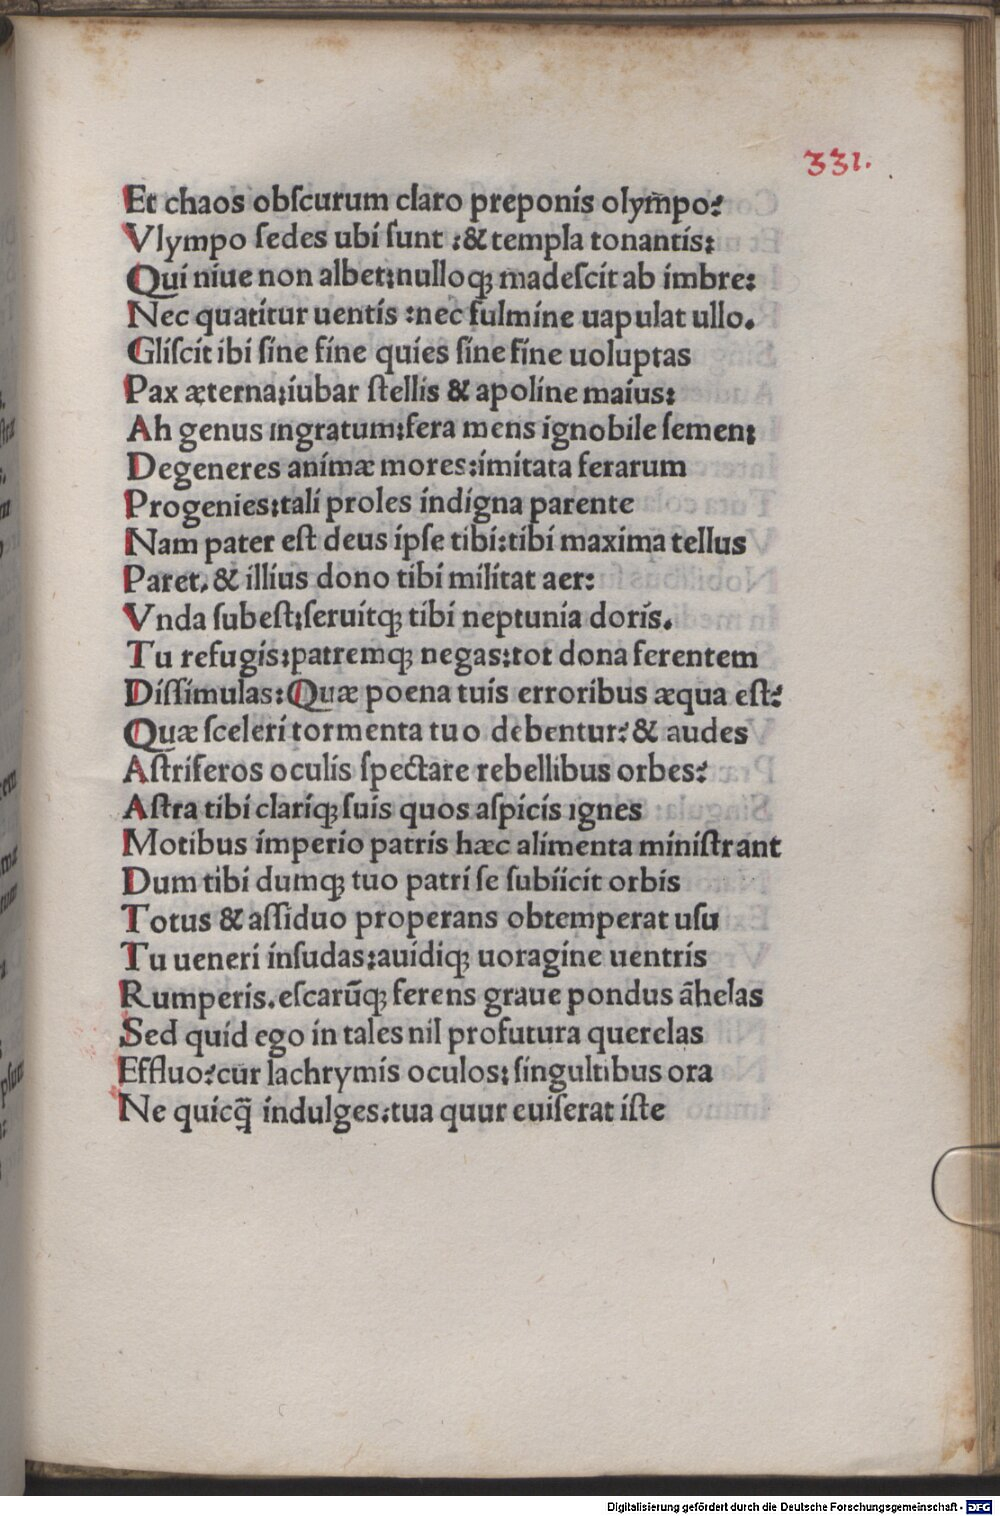 331.
Et chaos obſcurum claro preponis olym̄po?
Vlympo ſedes ubi ſunt :& templa tonantis:
Qui niue non albet:nulloqꝫ madeſcit ab imbre:
Nec quatitur uentis :nec fulmine uapulat ullo.
Gliſcit ibi ſine fine quies ſine fine uoluptas
Pax æterna:iubar ſtellis & apoline maius:
Ah genus ingratum:fera mens ignobile ſemen:
Degeneres animæ mores:imitata ferarum
Progenies:tali proles indigna parente
Nam pater eſt deus ipſe tibi:tibi maxima tellus
Paret.& illius dono tibi militat aer:
Vnda ſubeſt:ſeruitqꝫ tibi neptunia doris.
Tu refugis:patremqꝫ negas:tot dona ferentem
Diſſimulas:Quæ poena tuis erroribus æqua eſt?
Quæ ſceleri tormenta tuo debentur?& audes
Aſtriferos oculis ſpectare rebellibus orbes?
Aſtra tibi clariqꝫ ſuis quos aſpicis ignes
Motibus imperio patris hæc alimenta miniſtrant
Dum tibi dumqꝫ tuo patri ſe ſubiicit orbis
Totus & aſſiduo properans obtemperat uſu
Tu ueneri inſudas:auidiqꝫ uoragine uentris
Rumperis.eſcarūqꝫ ferens graue pondus āhelas
Sed quid ego in tales nil profutura querelas
Effluo?cur lachrymis oculos:ſingultibus ora
Ne quicq̄ indulges:tua quur euiſerat iſte
Digitalisierung gefördert durch die Deutsche Forschungsgemeinschaft - DFG